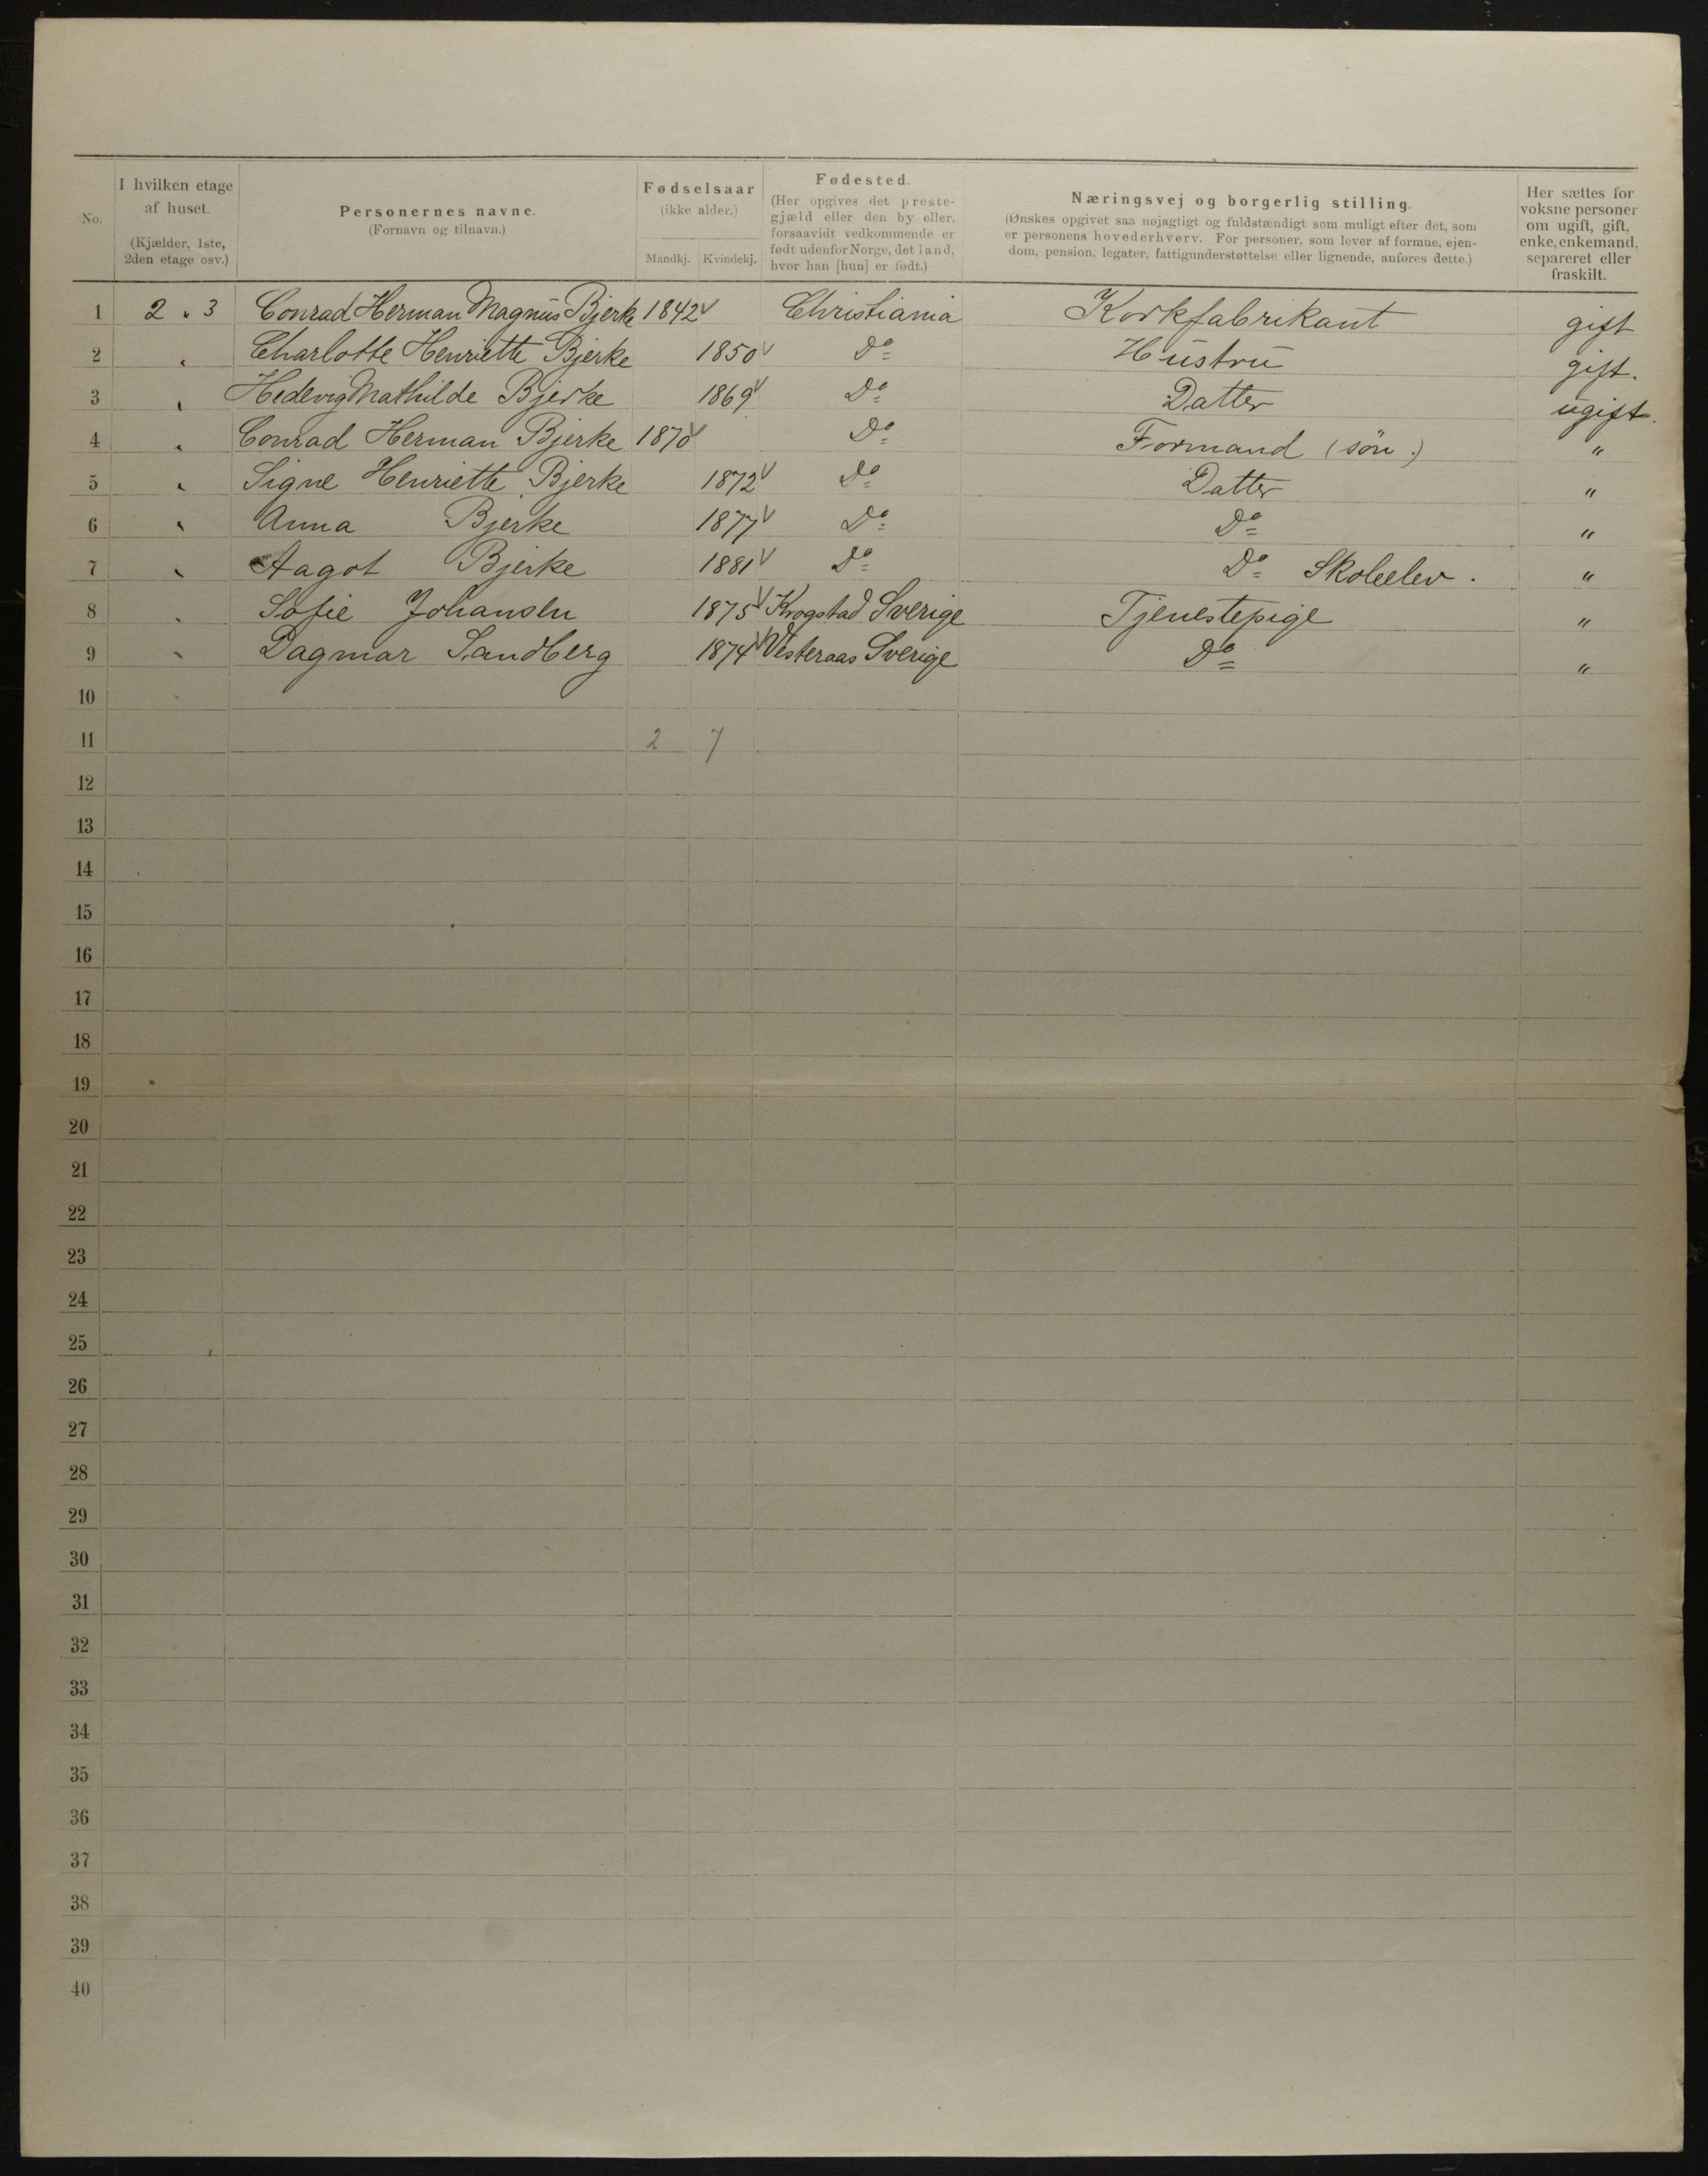 No.
I hvilken etage af huset. (Kjælder, 1ste, 2den etage osv.)
Personernes navne. (Fornavn og tilnavn.)
Fødselsaar (ikke alder.) Mandkj. Kvindekj.
Fødested. (Her opgives det prestegjæld eller den by eller, forsaavidt vedkommende er født udenfor Norge, det land, hvor han [hun] er født.)
Næringsvej og borgerlig stilling. (Ønskes opgivet saa nøjagtigt og fuldstændigt som muligt efter det, som er personens hovederhverv. For personer, som lever af formue, ejendom, pension, legater, fattigunderstøttelse eller lignende, anføres dette.)
Her sættes for voksne personer om ugift, gift, enke, enkemand, separeret eller fraskilt.
1 2 " 3 Conrad Herman Magnus Bjerke 1842 Christiania Korkfabrikant gift
2 " Charlotte Henriette Bjerke 1850 Do Hustru gift.
3 " Hedevig Mathilde Bjerke 1869 Do Datter ugift.
4 " Conrad Herman Bjerke 1870 Do Formand (søn.) "
5 " Signe Henriette Bjerke 1872 Do Datter "
6 " Anna Bjerke 1877 Do Do "
7 " Aagot Bjerke 1881 Do Do Skoleelev. "
8 " Sofie Johansen 1875 Krogstad Sverige Tjenestepige "
9 " Dagmar Sandberg 1874 Vesteraas Sverige Do "
10
11 2 7
12
13
14
15
16
17
18
19
20
21
22
23
24
25
26
27
28
29
30
31
32
33
34
35
36
37
38
39
40